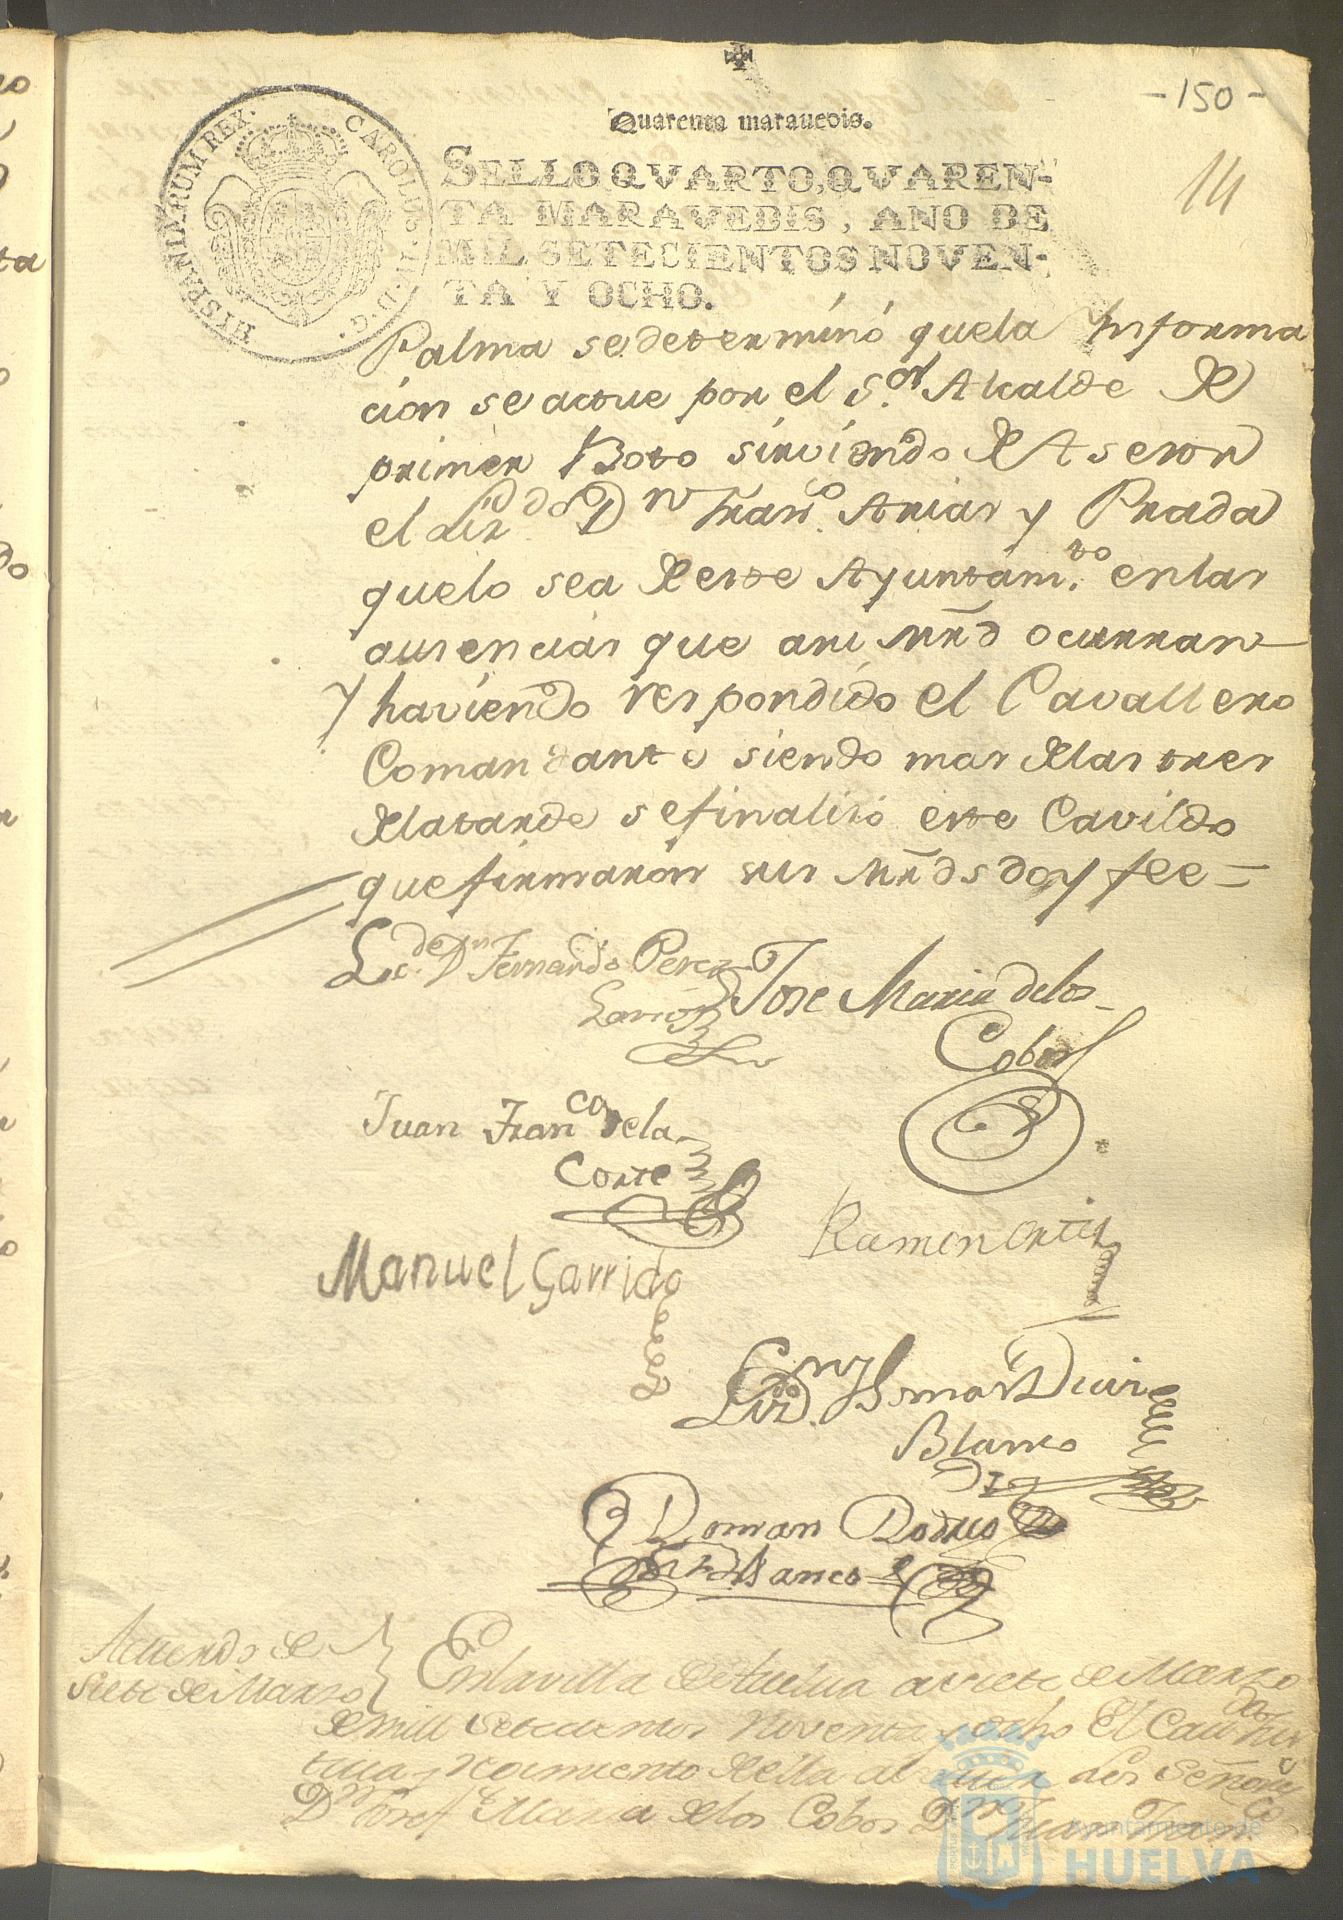 -150-
14
Quarenta maravedis.
SELLO QVARTO, QVAREN-
TA MARAVEDIS, AÑO DE
MIL SETECIENTOS NOVEN-
TA Y OCHO.
CAROLUS IV D. G. HISPANIARUM REX.
Palma se determinó quela Informa
cion se actue por el S.or Alcalde de
primer Boto sirviendo de Asesor
el Liz.do Dn Fran.co Arias y Prada
quelo sea de este Ayuntam.to enlas
ausencias que asu Mrd ocurran
y haviendo respondido el Cavallero
Comandante siendo mas delas tres
dela tarde se finalizó este Cavildo
que firmaron sus Mrds doy fee=
Lic.do Dn Fernando Perez
Jose Maria delos
Cobos
Juan Fran.co dela
Corte
Ramon Ortiz
Manuel Garrido
Blanco
Roman
Blanco
Acuerdo de
Siete de Marzo
Enla villa de Huelva a siete de Marzo
de mill setecientos noventa y ocho El Cav.do Jus
ticia y rejimiento de ella al Señores
Dn Josef Maria de los Cobos Dn Juan Fran.co
Ayuntamiento de
HUELVA